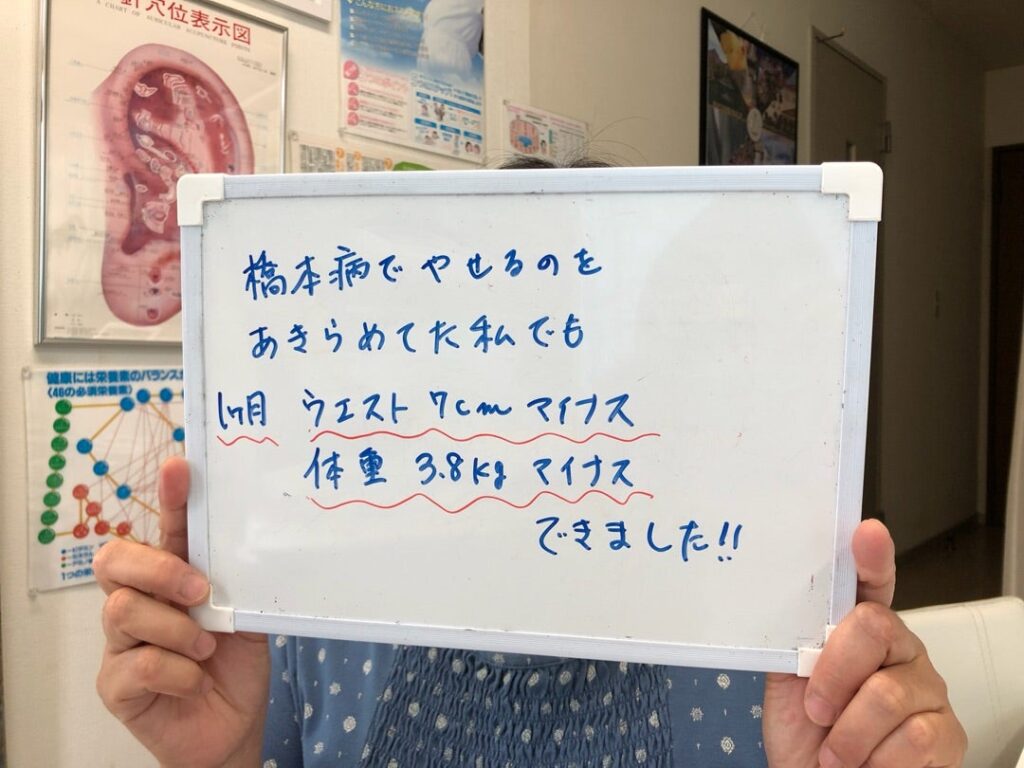 針穴位表示図
A CHART OF AURICULAR ACUPUNCTURE POINTS
橋本病でやせるのを
あきらめてた私でも
1ヶ月 ウエスト 7cm マイナス
体重 3.8kg マイナス
できました!!
健康には栄養素のバランスが
〈46の必須栄養素〉